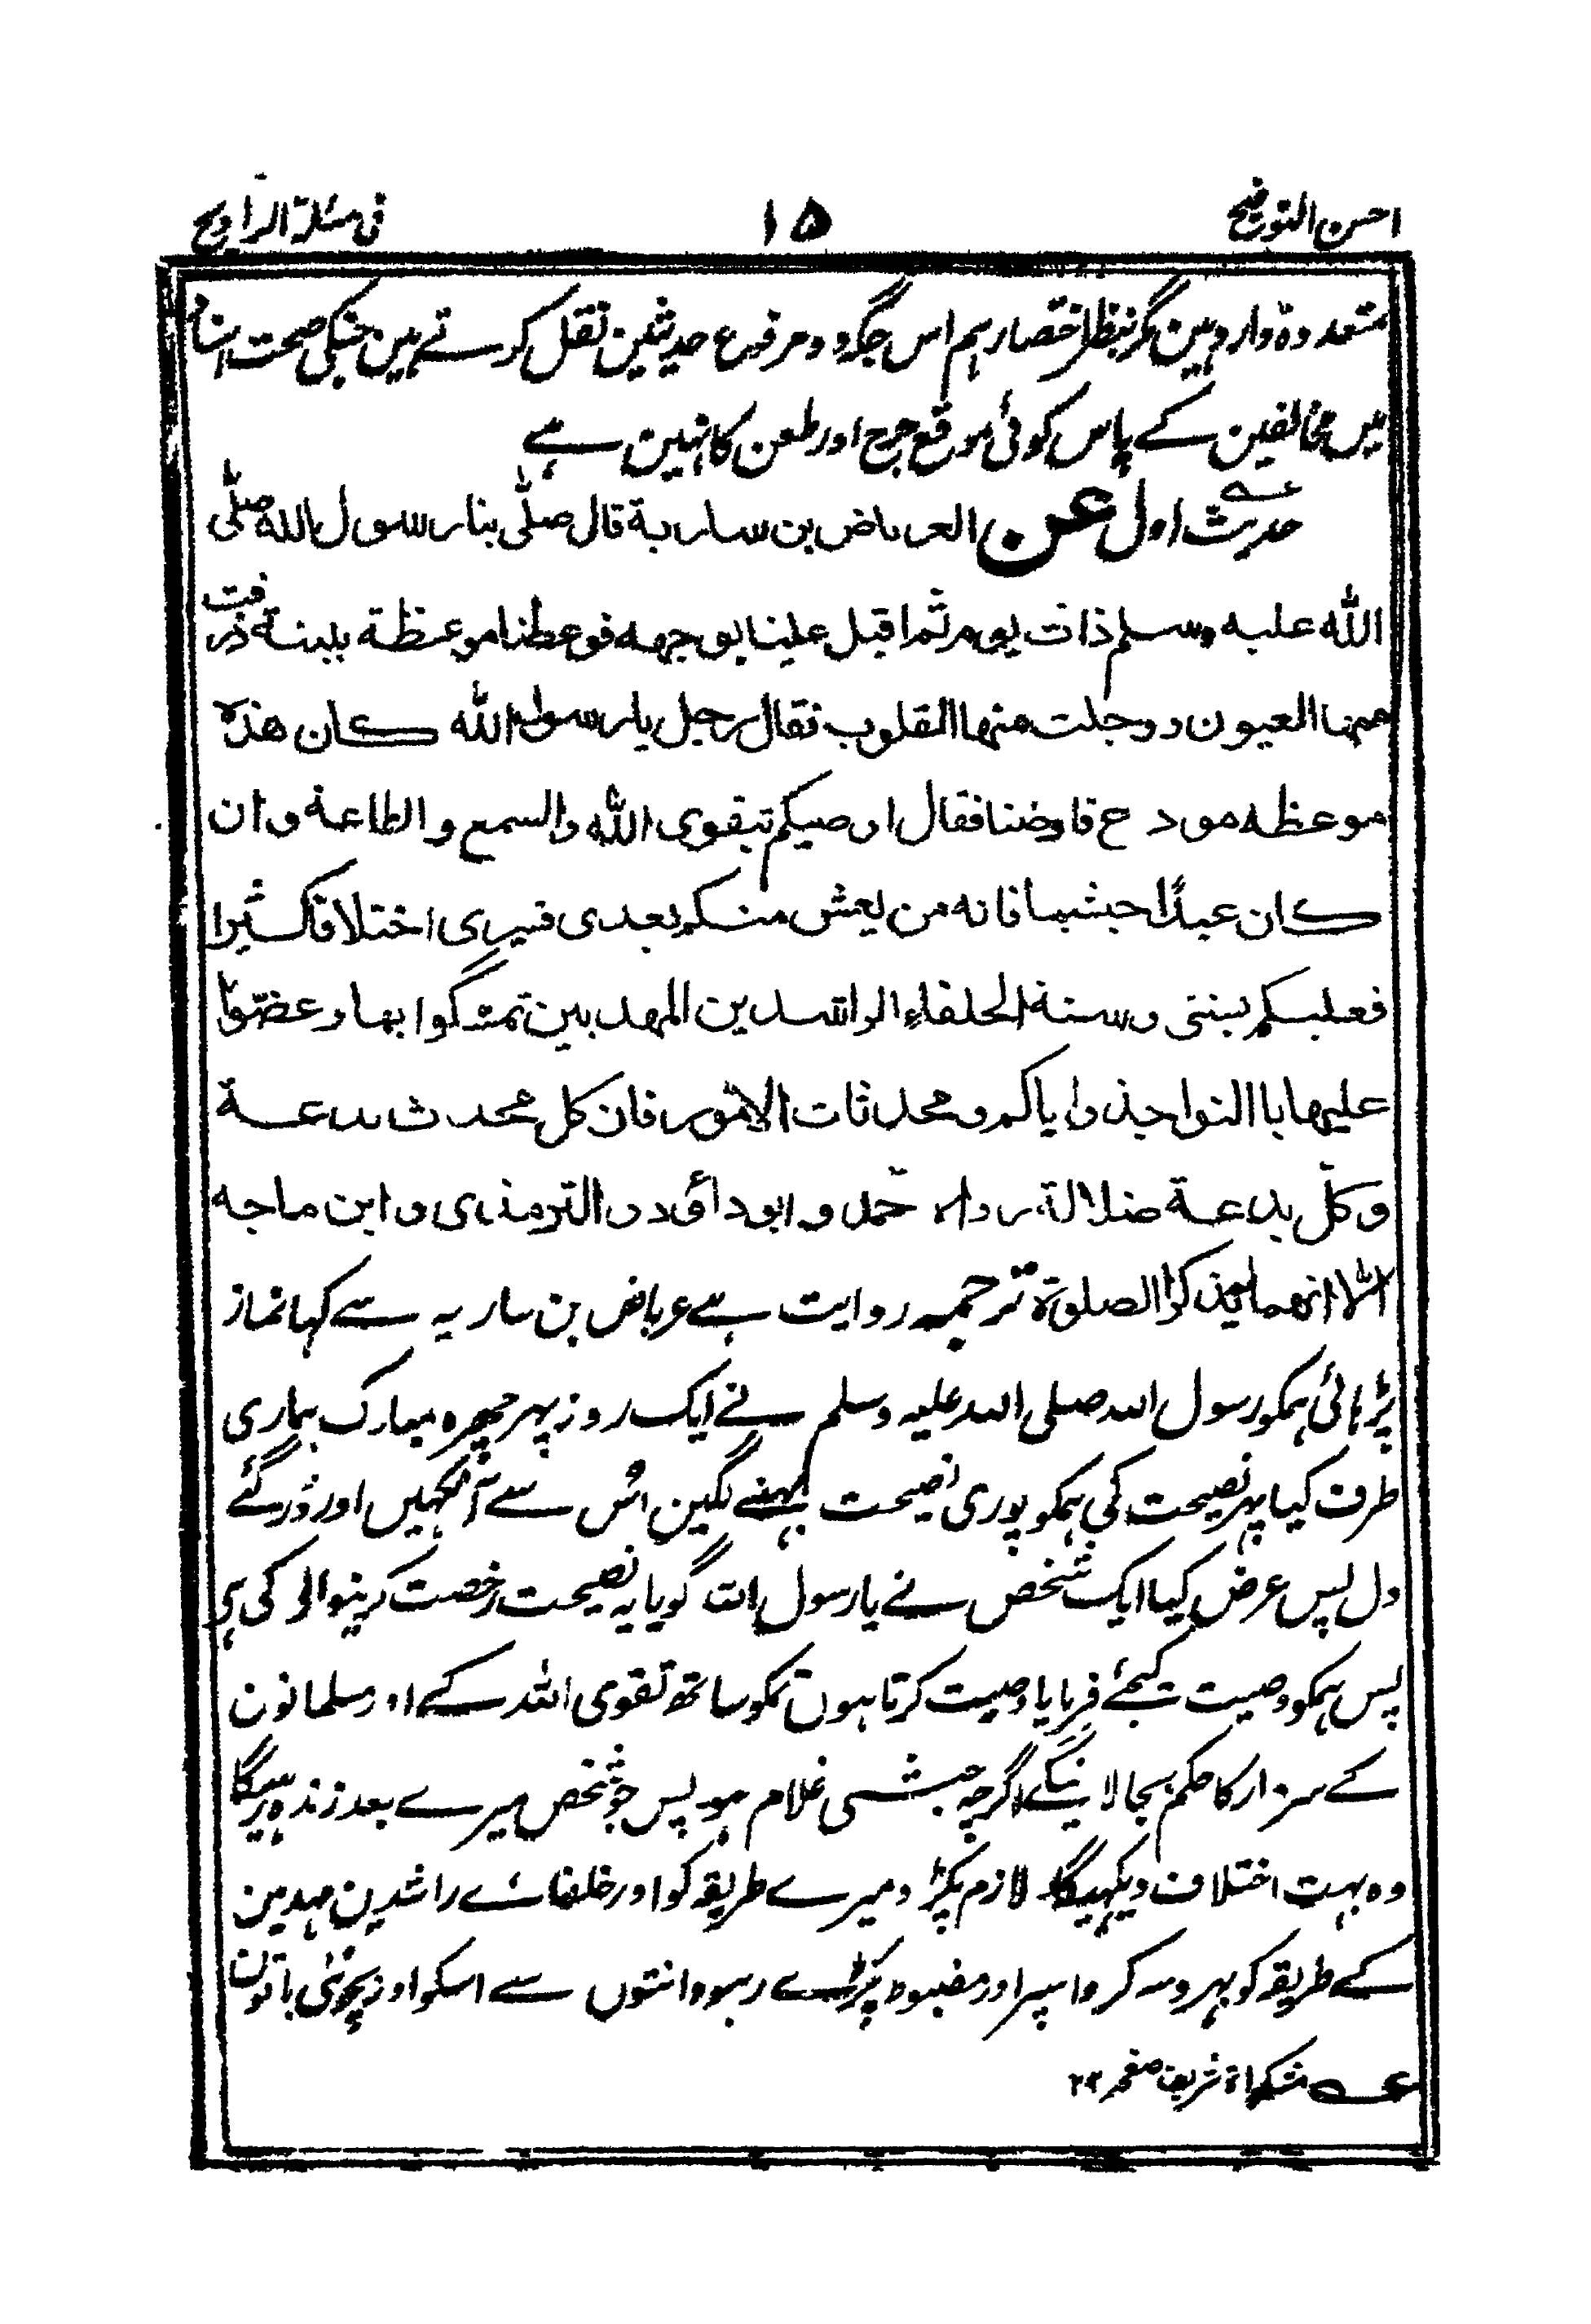 احسن التوضیح ۱۵ فی مسئلة التراویح
متعددہ وارد ہین مگر بنظر اختصار ہم اس جگہ دو مرفوع حدیثین نقل کرتے ہین جنکی صحت اسناد
میں مخالفین کے پاس کوئی موقع جرح اور طعن کا نہین ہے
حدیث اول عن العرباض بن سارية قال صلّى بنا رسول الله صلّى
الله عليه وسلم ذات يوم ثم اقبل علينا بوجهه فوعظنا موعظة بليغة ذرفت
منها العيون ووجلت منها القلوب فقال رجل يا رسول الله كان هذه
موعظه مودع فاوصنا فقال اوصيكم بتقوى الله والسمع والطاعة وان
كان عبدًا حبشيا فانه من يعش منكم بعدى فسيرى اختلافا كثيرا
فعليكم بسنتى وسنة الخلفاء الراشدين المهديين تمسّكوا بها وعضّوا
عليها بالنواجذ واياكم ومحدثات الامور فان كل محدث بدعة
وكلّ بدعة ضلالة رواه احمد و ابوداؤد والترمذى وابن ماجه
الا انهما لم يذكرا الصلوٰة ترجمہ روایت ہے عرباض بن ساریہ سے کہا نماز
پڑہائی ہمکو رسول اللہ صلی اللہ علیہ وسلم نے ایک روز پہر چہرہ مبارک ہماری
طرف کیا پہر نصیحت کی ہمکو پوری نصیحت بہنے لگین اُس سے آنکہیں اور ڈر گئے
دل پس عرض کیا ایک شخص نے یا رسول اللہ گویا یہ نصیحت رخصت کرنیوالی کی ہی
پس ہمکو وصیت کیجئے فرمایا وصیت کرتا ہون تمکو ساتھ تقوی اللہ کے اور مسلمانون
کے سردار کا حکم بجا لانیکے اگرچہ حبشی غلام ہو پس جو شخص میرے بعد زندہ رہیگا
وہ بہت اختلاف دیکہیگا لازم پکڑو میرے طریقہ کو اور خلفائے راشدین مہدیین
کے طریقہ کو بہروسہ کرو اسپر اور مضبوط پکڑے رہو دانتوں سے اسکو اور بچو نئی باتون
عہ مشکواة شریف صفحہ ۲۲